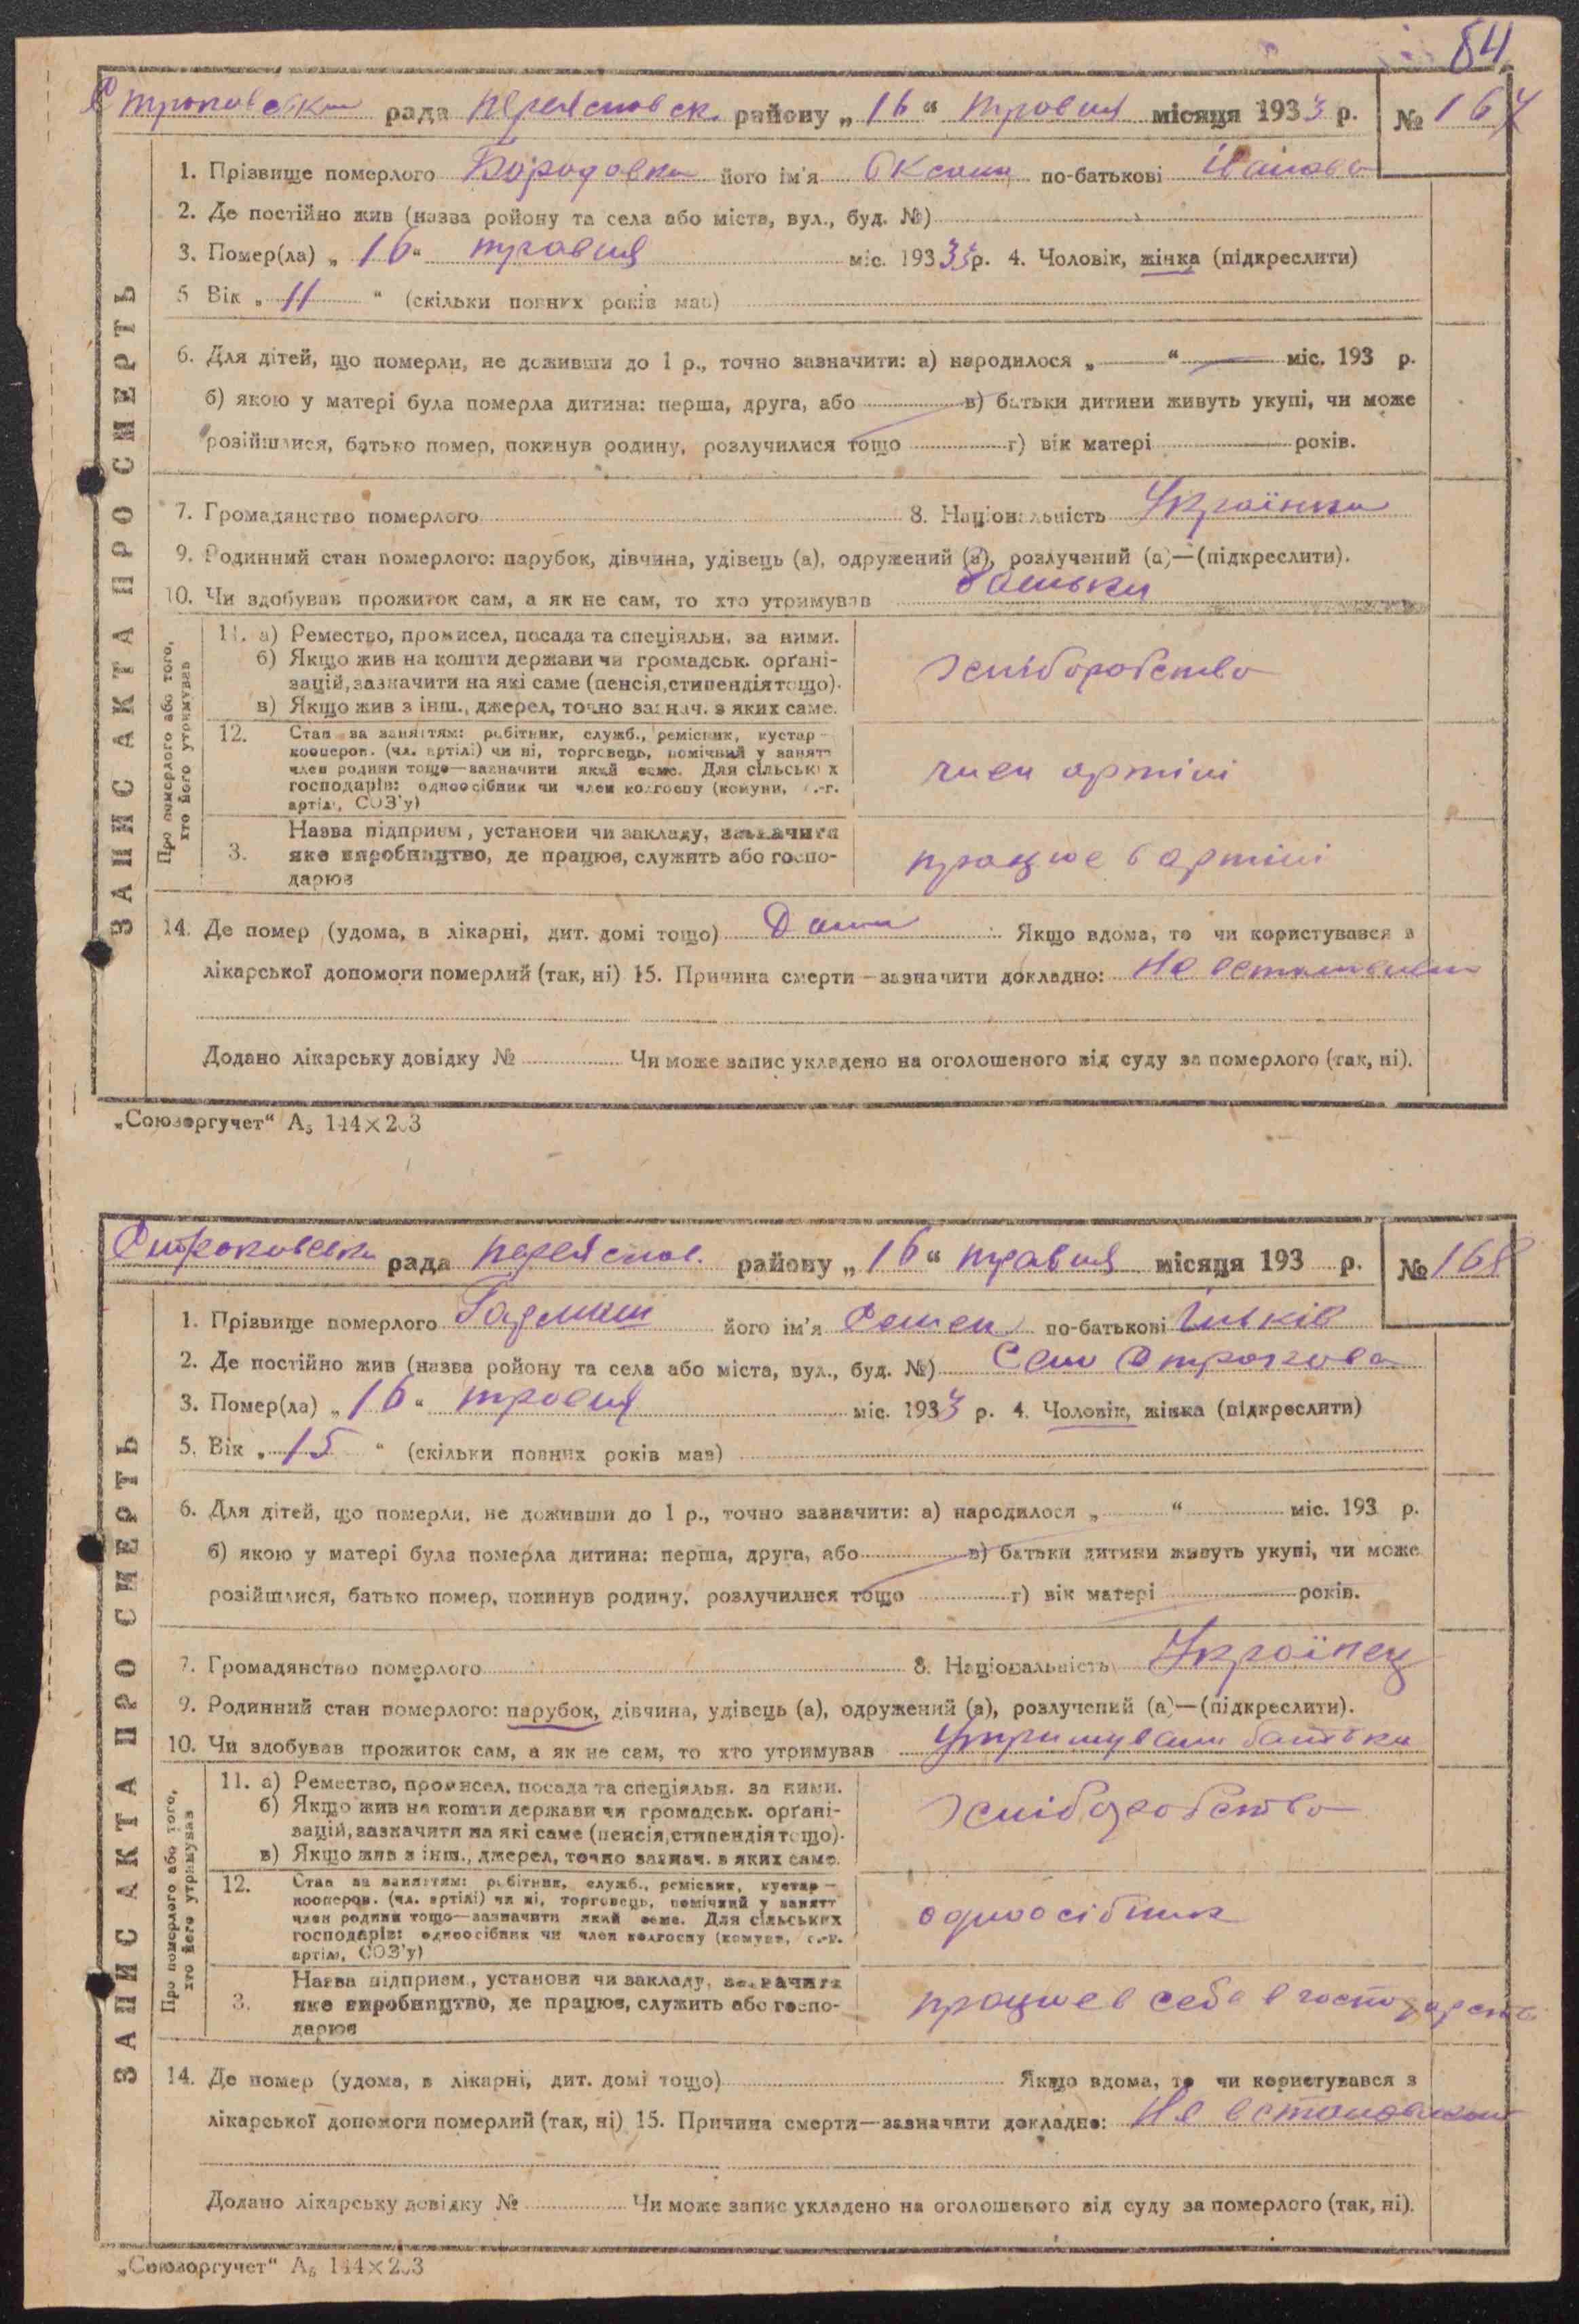 84
Строковська рада Переяславськ. району „16“ травня місяця 1933 р. № 167
1. Прізвище померлого Бородавка його ім'я Оксана по-батькові Иванова
2. Де постійно жив (назва ройону та села або міста, вул., буд. №)
3. Помер(ла) „16“ травня міс. 1933 р. 4. Чоловік, жінка (підкреслити)
5 Вік „11“ (скільки повних років мав)
6. Для дітей, що померли, не доживши до 1 р., точно зазначити: а) народилося „ “ міс. 193 р.
б) якою у матері була померла дитина: перша, друга, або в) батьки дитини живуть укупі, чи може
розійшлися, батько помер, покинув родину, розлучилися тощо г) вік матері років.
7. Громадянство померлого 8. Національність Українка
9. Родинний стан померлого: парубок, дівчина, удівець (а), одружений (а), розлучений (а)—(підкреслити).
10. Чи здобував прожиток сам, а як не сам, то хто утримував батьки
11. а) Ремество, промисел, посада та спеціяльн. за ними.
б) Якщо жив на кошти держави чи громадськ. орґані-
зацій, зазначити на які саме (пенсія, стипендія тощо).
в) Якщо жив з інш., джерел, точно зазнач. з яких саме.
хліборобство
12. Стан за заняттям: робітник, служб., ремісник, кустар—
кооперов. (чл. артілі) чи ні, торговець, помічний у занятт
член родини тощо—зазначити який саме. Для сільських
господарів: одноосібник чи член колгоспу (комуни, с.-г.
артілі, СОЗ'у)
член артілі
3. Назва підприєм, установи чи закладу, зазначити
яке виробництво, де працює, служить або госпо-
дарює
працює в артілі
14. Де помер (удома, в лікарні, дит. домі тощо) Дома Якщо вдома, то чи користувався з
лікарської допомоги померлий (так, ні) 15. Причина смерти—зазначити докладно: Не встановлено
Додано лікарську довідку № Чи може запис укладено на оголошеного від суду за померлого (так, ні).
„Союзоргучет“ А5 144×203
ЗАПИС АКТА ПРО СМЕРТЬ
Про померлого або того,
хто його утримував
Строковська рада Переяслав. району „16“ травня місяця 193 р. № 168
1. Прізвище померлого його ім'я Семен по-батькові
2. Де постійно жив (назва ройону та села або міста, вул., буд. №) Село Строкова
3. Помер(ла) „16“ травня міс. 1933 р. 4. Чоловік, жінка (підкреслити)
5. Вік „15“ (скільки повних років мав)
6. Для дітей, що померли, не доживши до 1 р., точно зазначити: а) народилося „ “ міс. 193 р.
б) якою у матері була померла дитина: перша, друга, або в) батьки дитини живуть укупі, чи може
розійшлися, батько помер, покинув родину, розлучилися тощо г) вік матері років.
7. Громадянство померлого 8. Національність Українец
9. Родинний стан померлого: парубок, дівчина, удівець (а), одружений (а), розлучений (а)—(підкреслити).
10. Чи здобував прожиток сам, а як не сам, то хто утримував Утримували батьки
11. а) Ремество, промисел, посада та спеціяльн. за ними.
б) Якщо жив на кошти держави чи громадськ. орґані-
зацій, зазначити на які саме (пенсія, стипендія тощо).
в) Якщо жив з інш., джерел, точно зазнач. з яких саме.
хліборобство
12. Стан за заняттям: робітник, служб., ремісник, кустар—
кооперов. (чл. артілі) чи ні, торговець, помічний у занятт
член родини тощо—зазначити який саме. Для сільських
господарів: одноосібник чи член колгоспу (комуни, с.-г.
артілі, СОЗ'у)
одноосібник
3. Назва підприєм., установи чи закладу, зазначити
яке виробництво, де працює, служить або госпо-
дарює
працює в себе в господарстві
14. Де помер (удома, в лікарні, дит. домі тощо) Якщо вдома, то чи користувався з
лікарської допомоги померлий (так, ні) 15. Причина смерти—зазначити докладно: Не встановлено
Додано лікарську довідку № Чи може запис укладено на оголошеного від суду за померлого (так, ні).
„Союзоргучет“ А5 144×203
ЗАПИС АКТА ПРО СМЕРТЬ
Про померлого або того,
хто його утримував